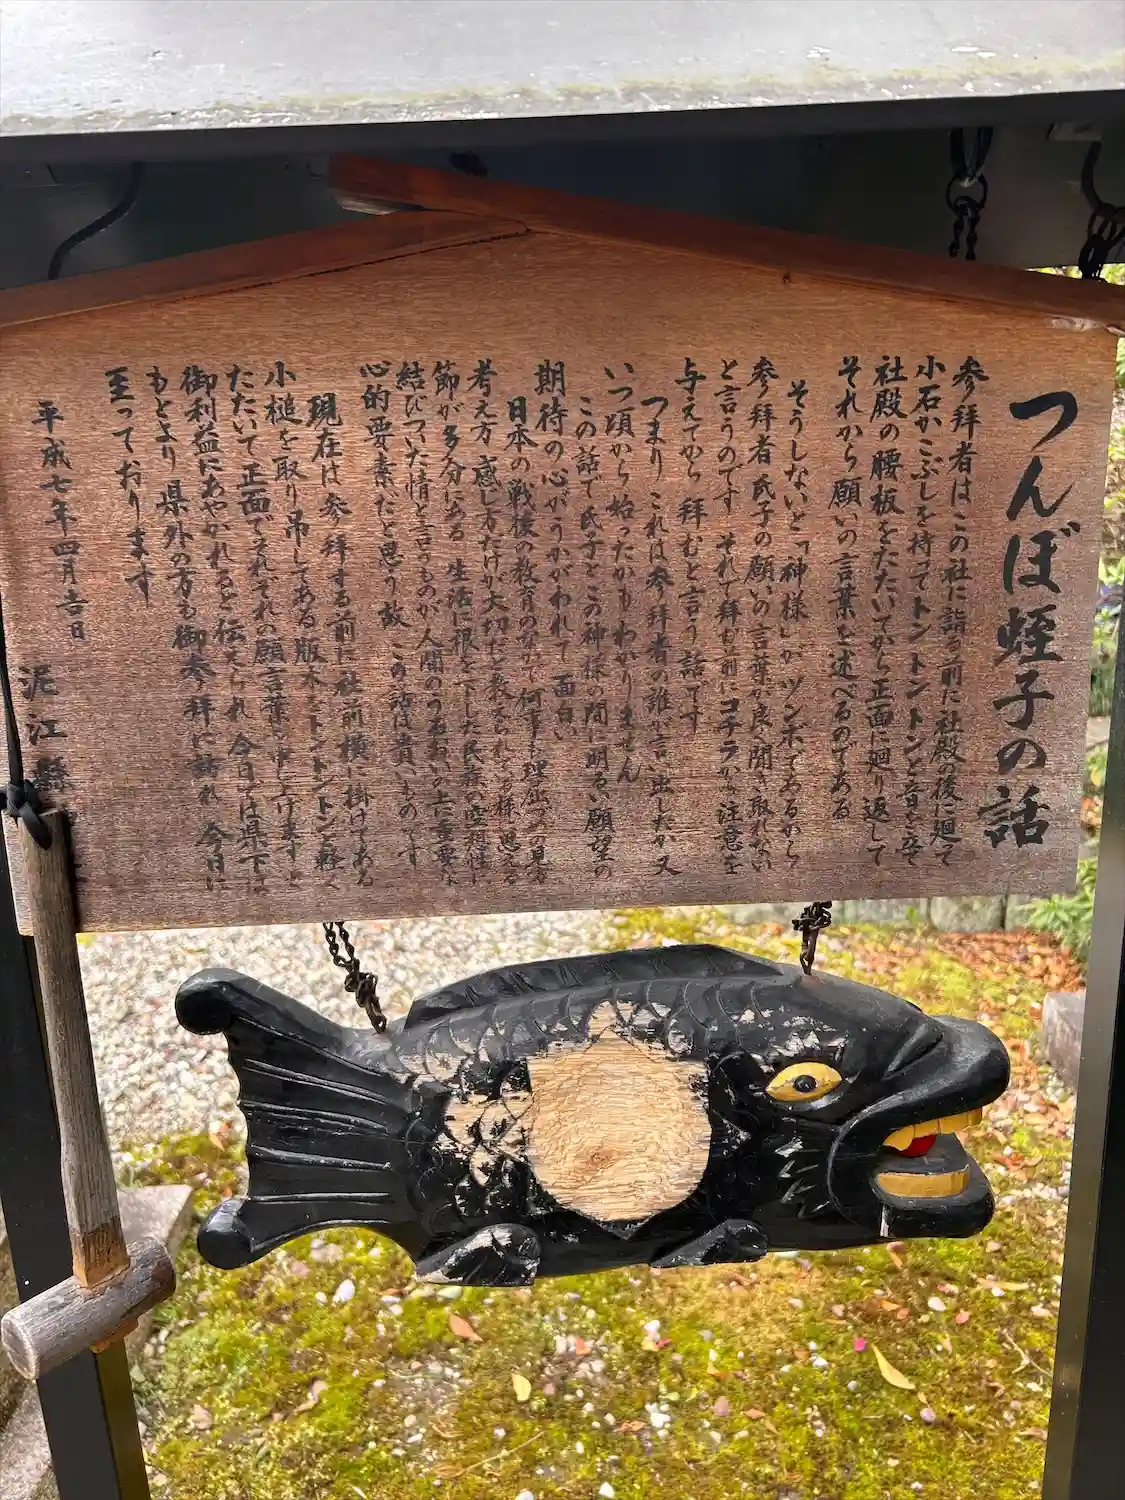 つんぼ蛭子の話
参拝者はこの社に詣る前に社殿の後に廻て
小石かこぶしを持ってトントントンと音を立て
社殿の腰板をたたいてから正面に廻り返して
それから願いの言葉を述べるのである
そうしないと「神様」がツンボであるから
参拝者氏子の願いの言葉が良く聞き取れない
と言うのです それで拝む前にコチラから注意を
与えてから 拝むと言う話です
つまり これは参拝者の誰が言い出したか又
いつ頃から始ったかもわかりません
この話で氏子とこの神様の間に明るい願望の
期待の心がうかがわれて 面白い
日本の戦後の教育の中で 何事も理屈の見方
考え方 感じ方だけが大切だと教えられ 思える
節が多分にある 生活に根を下した民衆の空想性に
結びついた情と言うものが 人間のうるおいの上に重要な
心的要素だと思う故 この話は貴いものです
現在は参拝する前に社前横に掛けてある
小槌を取り吊してある版木をトントントンと軽く
たたいて正面でそれぞれの願言葉を申し上げますと
御利益にあやかれると伝えられ 今日では県下は
もとより県外の方も御参拝に詣れ 今日に
至っております
平成七年四月吉日
泥江縣